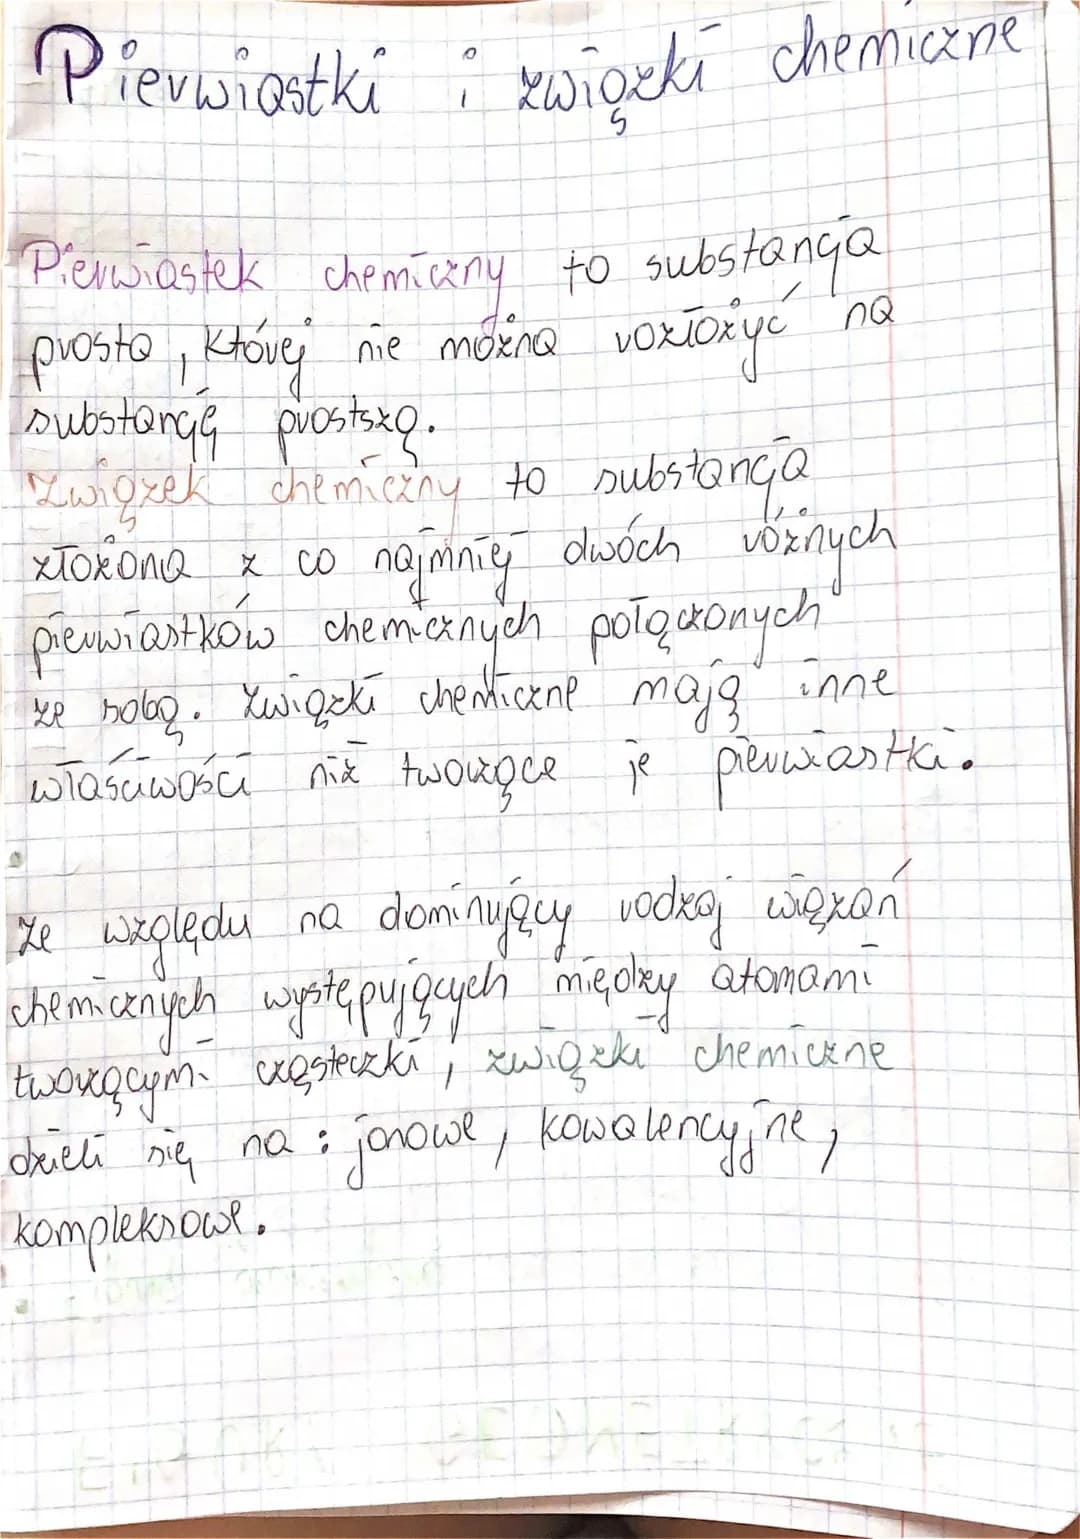 Pierwiastki i związki chemiczne
Pierwiastek chemiczny to substancja
prosta, której nie można rozłożyć na
substancję prostszą.
Związek chemiczny to substancja
złożona z co najmniej dwóch różnych
pierwiastków chemicznych połączonych
ze sobą. Związki chemiczne mają inne
właściwości niż tworzące je pierwiastki.
Ze względu na dominujący rodzaj wiązań
chemicznych występujących między atomami
tworzącymi cząsteczki, związki chemiczne
dzieli się na: jonowe, kowalencyjne,
kompleksowe.